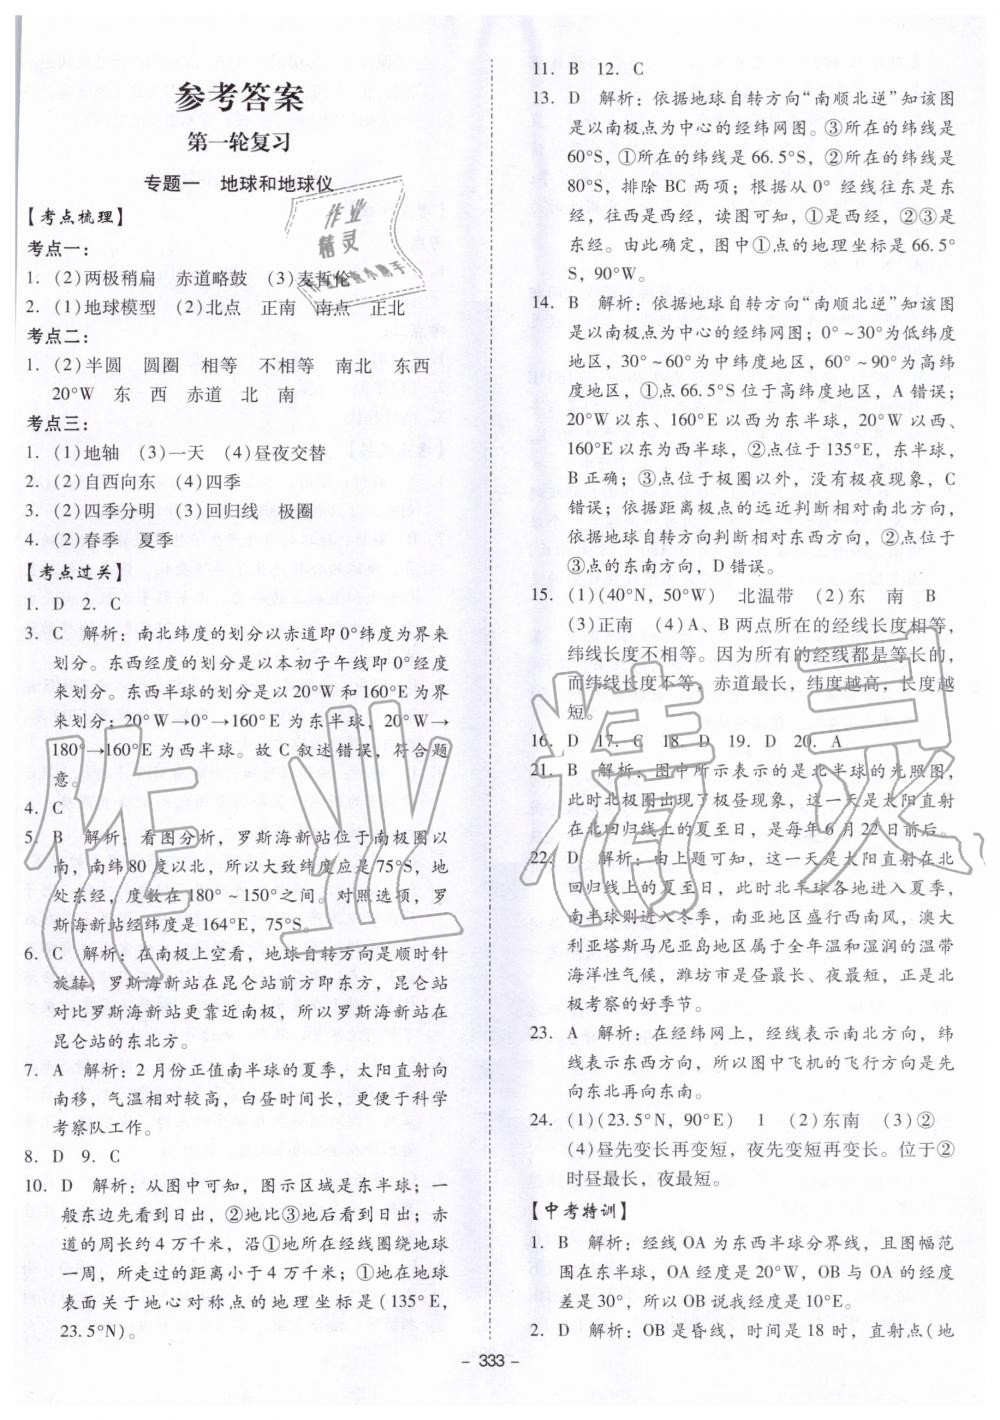 参考答案
第一轮复习
专题一 地球和地球仪
【考点梳理】
考点一：
1. (2)两极稍扁 赤道略鼓 (3)麦哲伦
2. (1)地球模型 (2)北点 正南 南点 正北
考点二：
1. (2)半圆 圆圈 相等 不相等 南北 东西
20°W 东 西 赤道 北 南
考点三：
1. (1)地轴 (3)一天 (4)昼夜交替
2. (2)自西向东 (4)四季
3. (2)四季分明 (3)回归线 极圈
4. (2)春季 夏季
【考点过关】
1. D 2. C
3. C 解析：南北纬度的划分以赤道即0°纬度为界来
划分。东西经度的划分是以本初子午线即0°经度
来划分。东西半球的划分是以20°W和160°E为界
来划分；20°W→0°→160°E为东半球，20°W→
180°→160°E为西半球。故C叙述错误，符合题
意。
4. C
5. B 解析：看图分析，罗斯海新站位于南极圈以
南，南纬80度以北，所以大致纬度应是75°S，地
处东经，度数在180°～150°之间。对照选项，罗
斯海新站经纬度是164°E，75°S。
6. C 解析：在南极上空看，地球自转方向是顺时针
旋转；罗斯海新站在昆仑站前方即东方，昆仑站
对比罗斯海新站更靠近南极，所以罗斯海新站在
昆仑站的东北方。
7. A 解析：2月份正值南半球的夏季，太阳直射向
南移，气温相对较高，白昼时间长，更便于科学
考察队工作。
8. D 9. C
10. D 解析：从图中可知，图示区域是东半球；一
般东边先看到日出，②地比③地后看到日出；赤
道的周长约4万千米，沿①地所在经线圈绕地球
一周，所走过的距离小于4万千米；①地在地球
表面关于地心对称点的地理坐标是(135°E，
23.5°N)。
11. B 12. C
13. D 解析：依据地球自转方向“南顺北逆”知该图
是以南极点为中心的经纬网图。③所在的纬线是
60°S，①所在的纬线是66.5°S，②所在的纬线是
80°S，排除BC两项；根据从0°经线往东是东
经，往西是西经，读图可知，①是西经，②③是
东经。由此确定，图中①点的地理坐标是66.5°
S，90°W。
14. B 解析：依据地球自转方向“南顺北逆”知该图
是以南极点为中心的经纬网图；0°～30°为低纬度
地区，30°～60°为中纬度地区，60°～90°为高纬
度地区，①点66.5°S位于高纬度地区，A错误；
20°W以东、160°E以西为东半球，20°W以西、
160°E以东为西半球，②点位于135°E，东半球，
B正确；③点位于极圈以外，没有极夜现象，C
错误；依据距离极点的远近判断相对南北方向，
依据地球自转方向判断相对东西方向，②点位于
③点的东南方向，D错误。
15. (1)(40°N，50°W) 北温带 (2)东 南 B
(3)正南 (4)A、B两点所在的经线长度相等，
纬线长度不等。因为所有的经线都是等长的，
而纬线长度不等，赤道最长，纬度越高，长度越
短。
16. D 17. C 18. D 19. D 20. A
21. B 解析：图中所示表示的是北半球的光照图，
此时北极圈出现了极昼现象，这一天是太阳直射
在北回归线上的夏至日，是每年6月22日前后。
22. D 解析：由上题可知，这一天是太阳直射在北
回归线上的夏至日，此时北半球各地进入夏季，
南半球则进入冬季，南亚地区盛行西南风，澳大
利亚塔斯马尼亚岛地区属于全年温和湿润的温带
海洋性气候，潍坊市是昼最长、夜最短，正是北
极考察的好季节。
23. A 解析：在经纬网上，经线表示南北方向，纬
线表示东西方向，所以图中飞机的飞行方向是先
向东北再向东南。
24. (1)(23.5°N，90°E) 1 (2)东南 (3)②
(4)昼先变长再变短，夜先变短再变长。位于②
时昼最长，夜最短。
【中考特训】
1. B 解析：经线OA为东西半球分界线，且图幅范
围在东半球，OA经度是20°W，OB与OA的经度
差是30°，所以OB说我经度是10°E。
2. D 解析：OB是昏线，时间是18时，直射点(地
- 333 -
作业
精灵